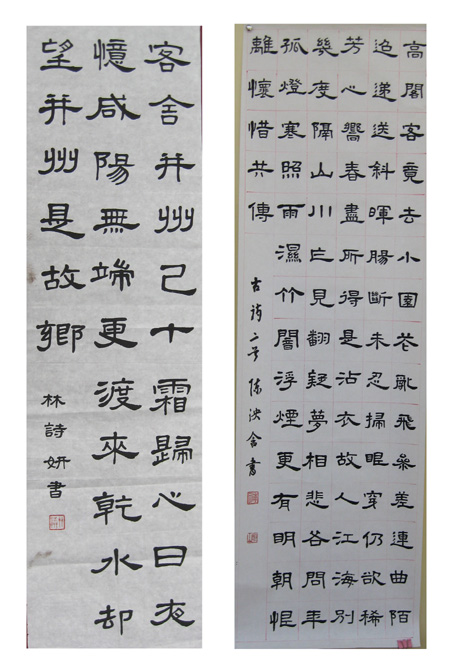 客舍并州已十霜歸心日夜
憶咸陽無端更渡來乾水却
望并州是故鄉
林詩妍書
高閣客竟去小園花亂飛參差連曲陌
迢遞送斜暉腸斷未忍掃眼穿仍欲稀
芳心嚮春盡所得是沾衣故人江海別
幾度隔山川乍見翻疑夢相悲各問年
孤燈寒照雨濕竹闇浮煙更有明朝恨
離懷惜共傳
古詩二首 陳泱含書